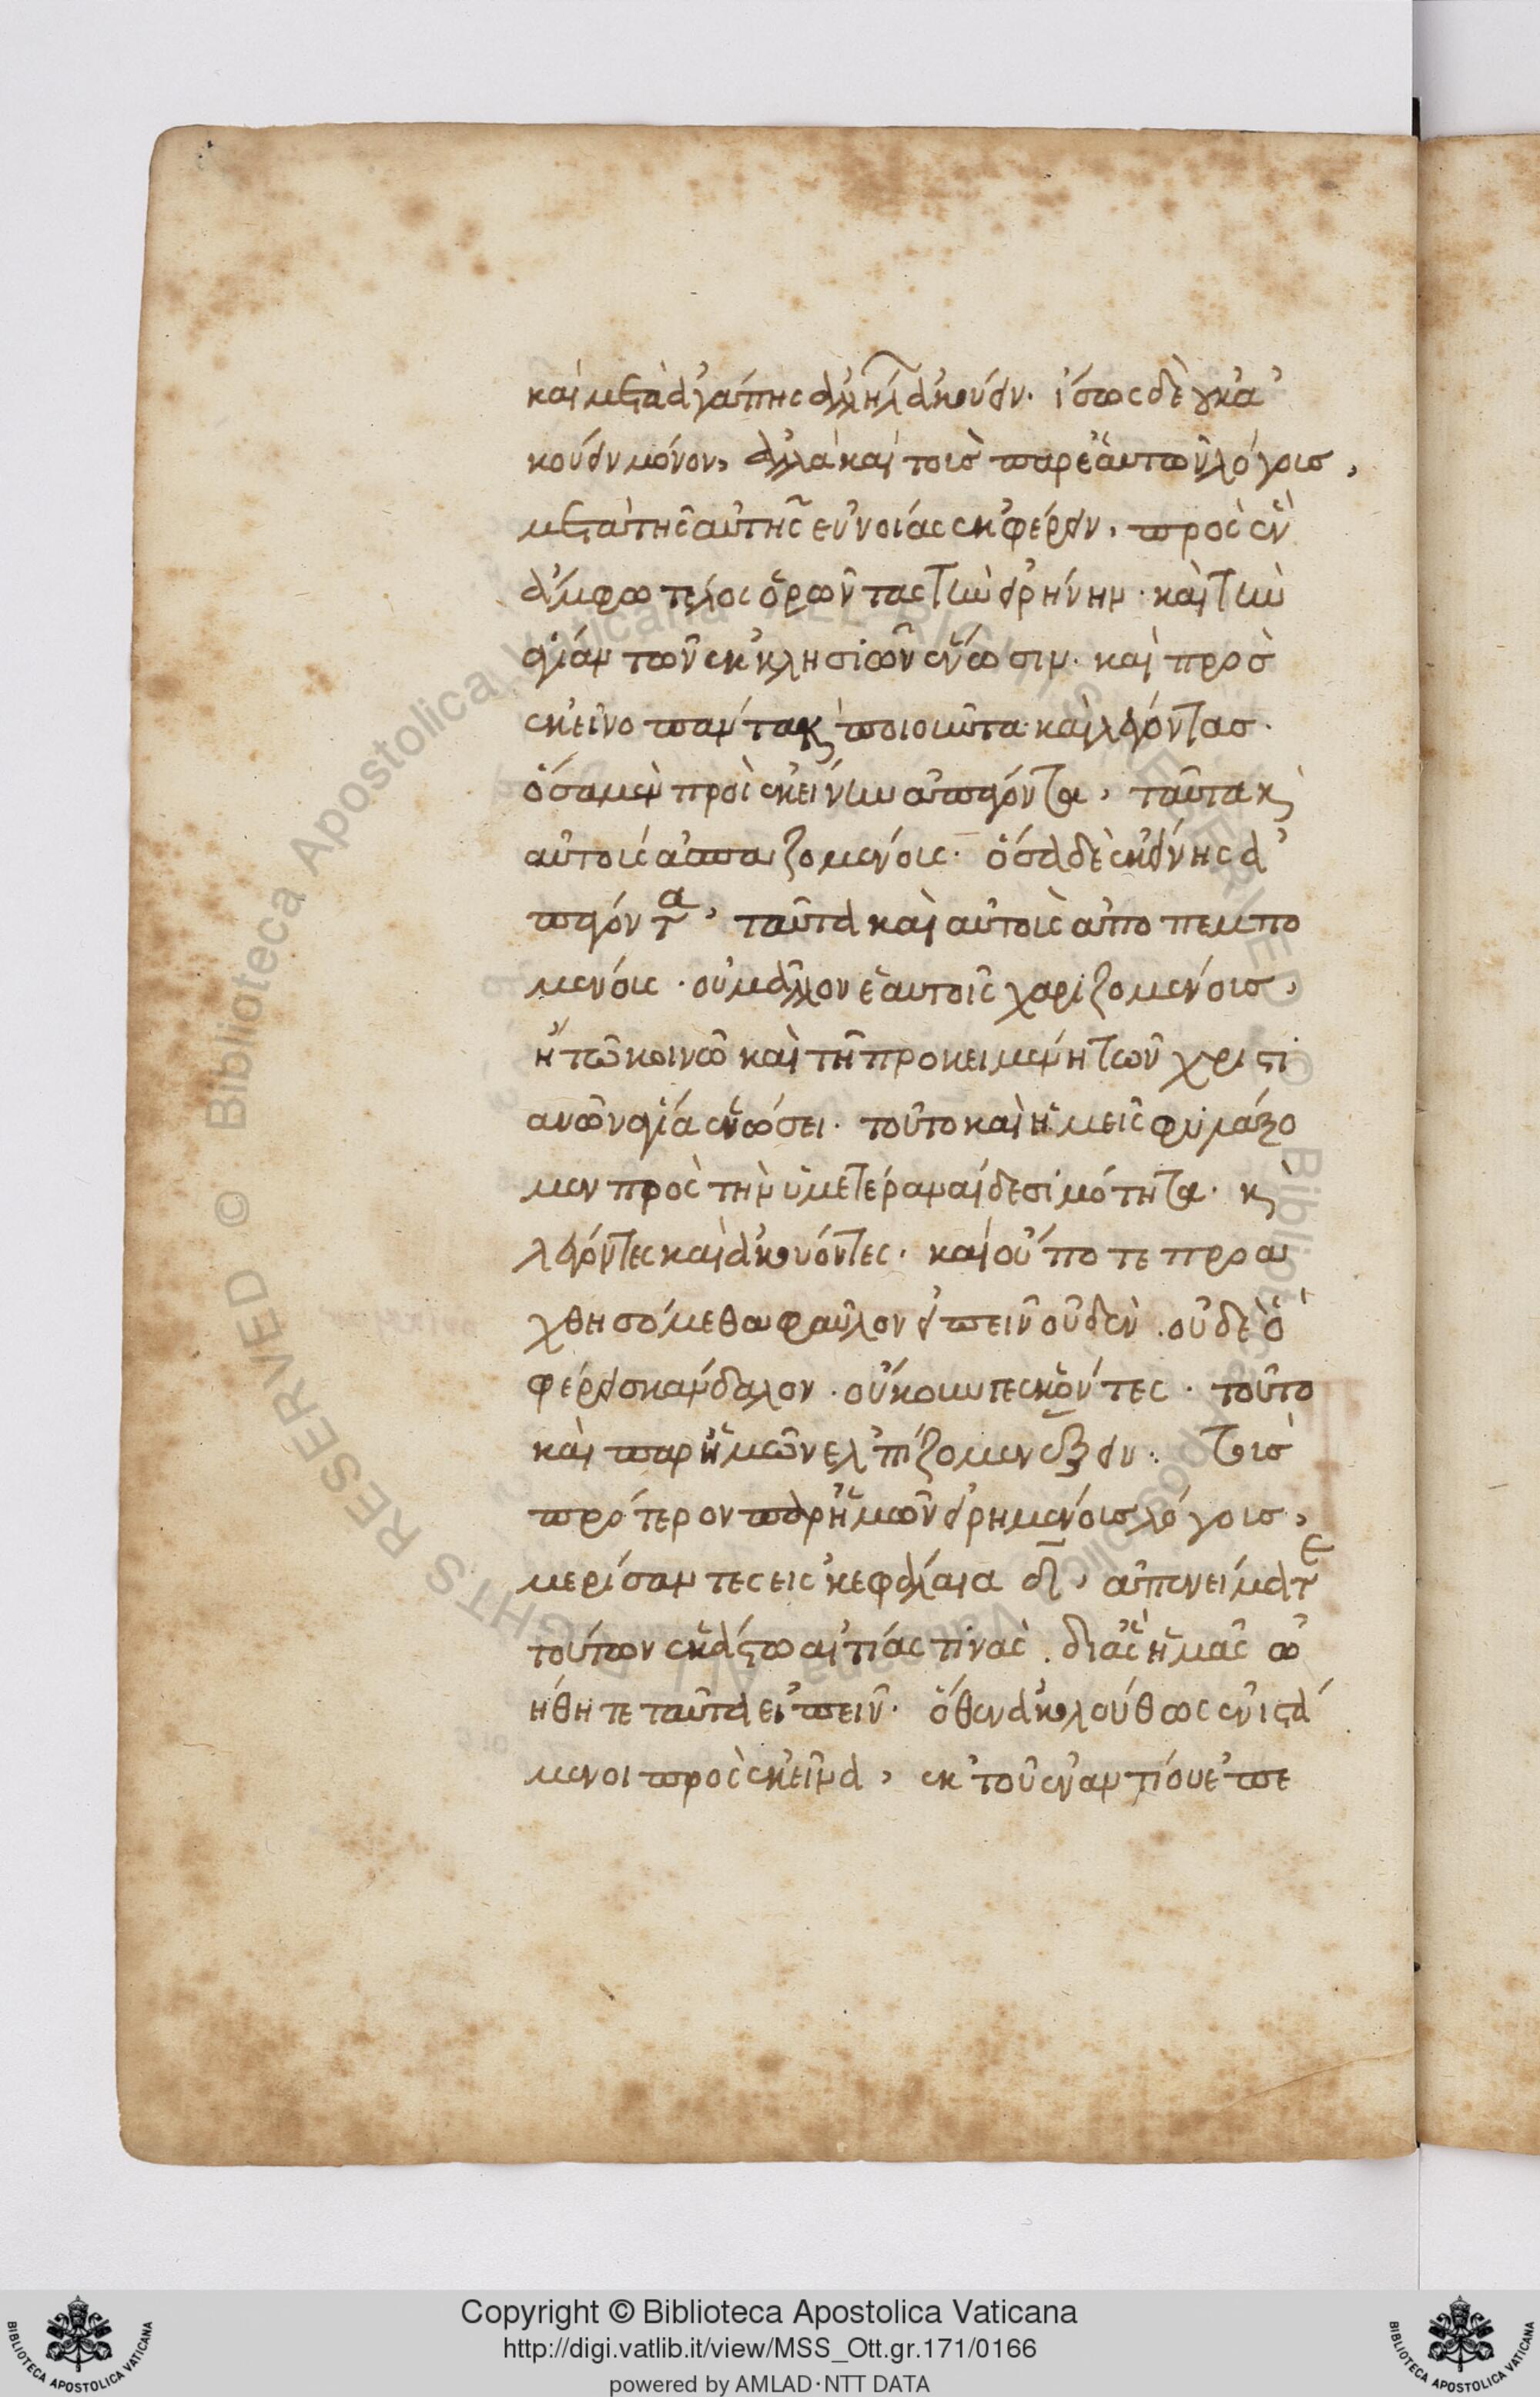 καὶ μετὰ ἀγάπης ἀλλήλων ἀκούειν. ἴσως δὲ οὐκ ἀ
κούειν μόνον, ἀλλὰ καὶ τοῖς παρ' ἑαυτῶν λόγοις,
μετὰ τῆς αὐτῆς εὐνοίας ἐκφέρειν, πρὸς ἓν
ἄμφω τέλος ὁρῶντας τὴν εἰρήνην. καὶ τὴν
ἁγίαν τῶν ἐκκλησιῶν ἕνωσιν. καὶ πρὸς
ἐκεῖνο πάντα καὶ ποιοῦντα καὶ λέγοντας.
ὅσα μὲν πρὸς ἐκείνην ἀπάγοντα, ταῦτα κ
αὐτοῖς ἀσπαζομένοις. ὅσα δὲ ἐκείνης ἀ
πάγοντα, ταῦτα καὶ αὐτοῖς ἀποπεμπο
μένοις. οὐ μᾶλλον ἑαυτοῖς χαριζομένοις,
ἢ τῶ κοινῶ καὶ τῆ προκειμένη τῶν χριστι
ανῶν ἁγία ἑνώσει. τοῦτο καὶ ἡμεῖς φυλάξο
μεν πρὸς τὴν ὑμετέραν αἰδεσιμότητα. κ
λέγοντες καὶ ἀκούοντες. καὶ οὔποτε προα
χθησόμεθα φαῦλον εἰπεῖν οὐδέν. οὐδὲ ὃ
φέρει σκάνδαλον. οὔκουν γε ἑκόντες. τοῦτο
καὶ παρ' ὑμῶν ἐλπίζομεν ἕξειν. Τοῖς
πρότερον παρ' ἡμῶν εἰρημένοις λόγοις,
μερίσαντες εἰς κεφάλαια δ, ἀπονείματε
τούτων ἑκάστω αἰτίας τινάς. δι' ἃς ἡμᾶς ὠ
ήθητε ταῦτα εἰπεῖν. ὅθεν ἀκολούθως ἐνιστά
μενοι πρὸς ἐκεῖνα, ἐκ τοῦ ἐναντίου ἐπε
Copyright © Biblioteca Apostolica Vaticana
http://digi.vatlib.it/view/MSS_Ott.gr.171/0166
powered by AMLAD·NTT DATA